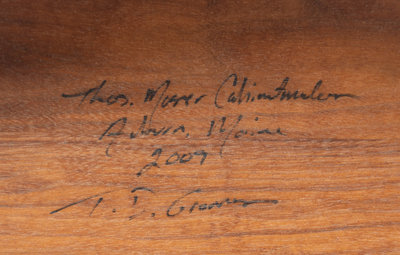 Thos. Moser Cabinetmakers
Auburn, Maine
2009
T. D.